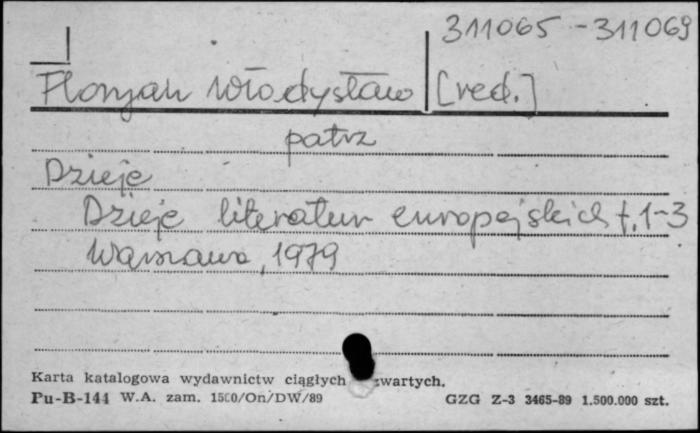 311065 - 311069
Floryan Władysław [red.]
patrz
Dzieje
Dzieje literatur europejskich t. 1-3
Warszawa, 1979
Karta katalogowa wydawnictw ciągłych zwartych.
Pu-B-144 W.A. zam. 1500/On/DW/89 GZG Z-3 3465-89 1.500.000 szt.